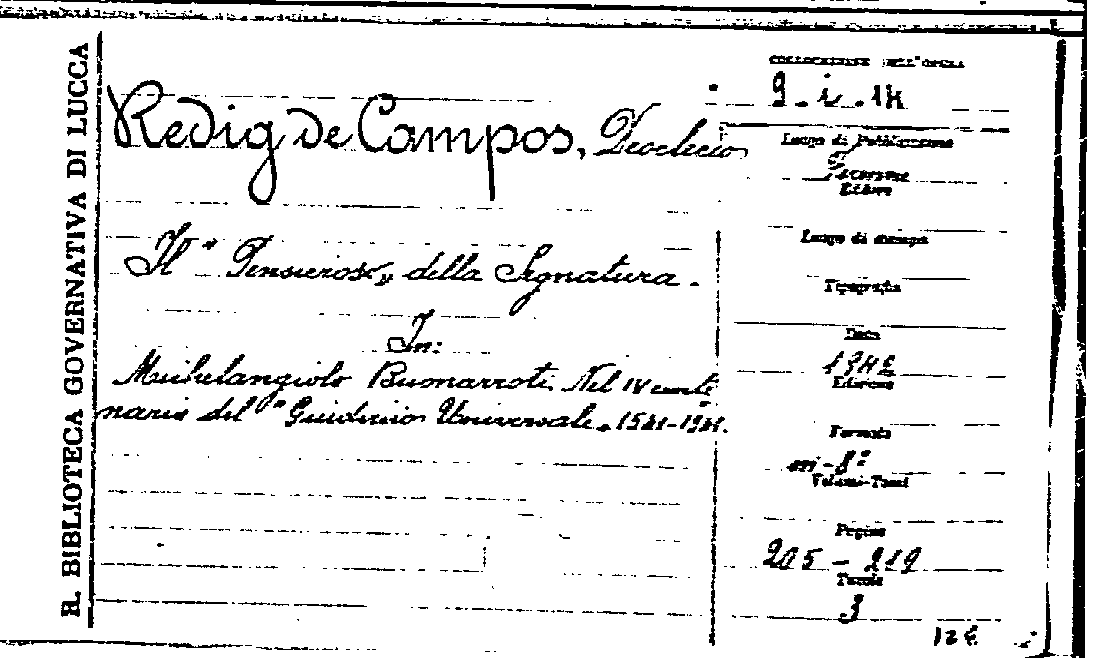 R. BIBLIOTECA GOVERNATIVA DI LUCCA
Redig de Campos, Deoclecio
Il "Pensieroso„ della Signatura.
In:
Michelangiolo Buonarroti. Nel IV cente
nario del "Giudizio Universale„ 1541-1941.
COLLOCAZIONE DELL'OPERA
9. i. 14
Luogo di Pubblicazione
Firenze
Editore
Luogo di stampa
Tipografia
Data
1942
Edizione
Formato
in-8°
Volumi-Tomi
Pagine
205 - 219
Tavole
3